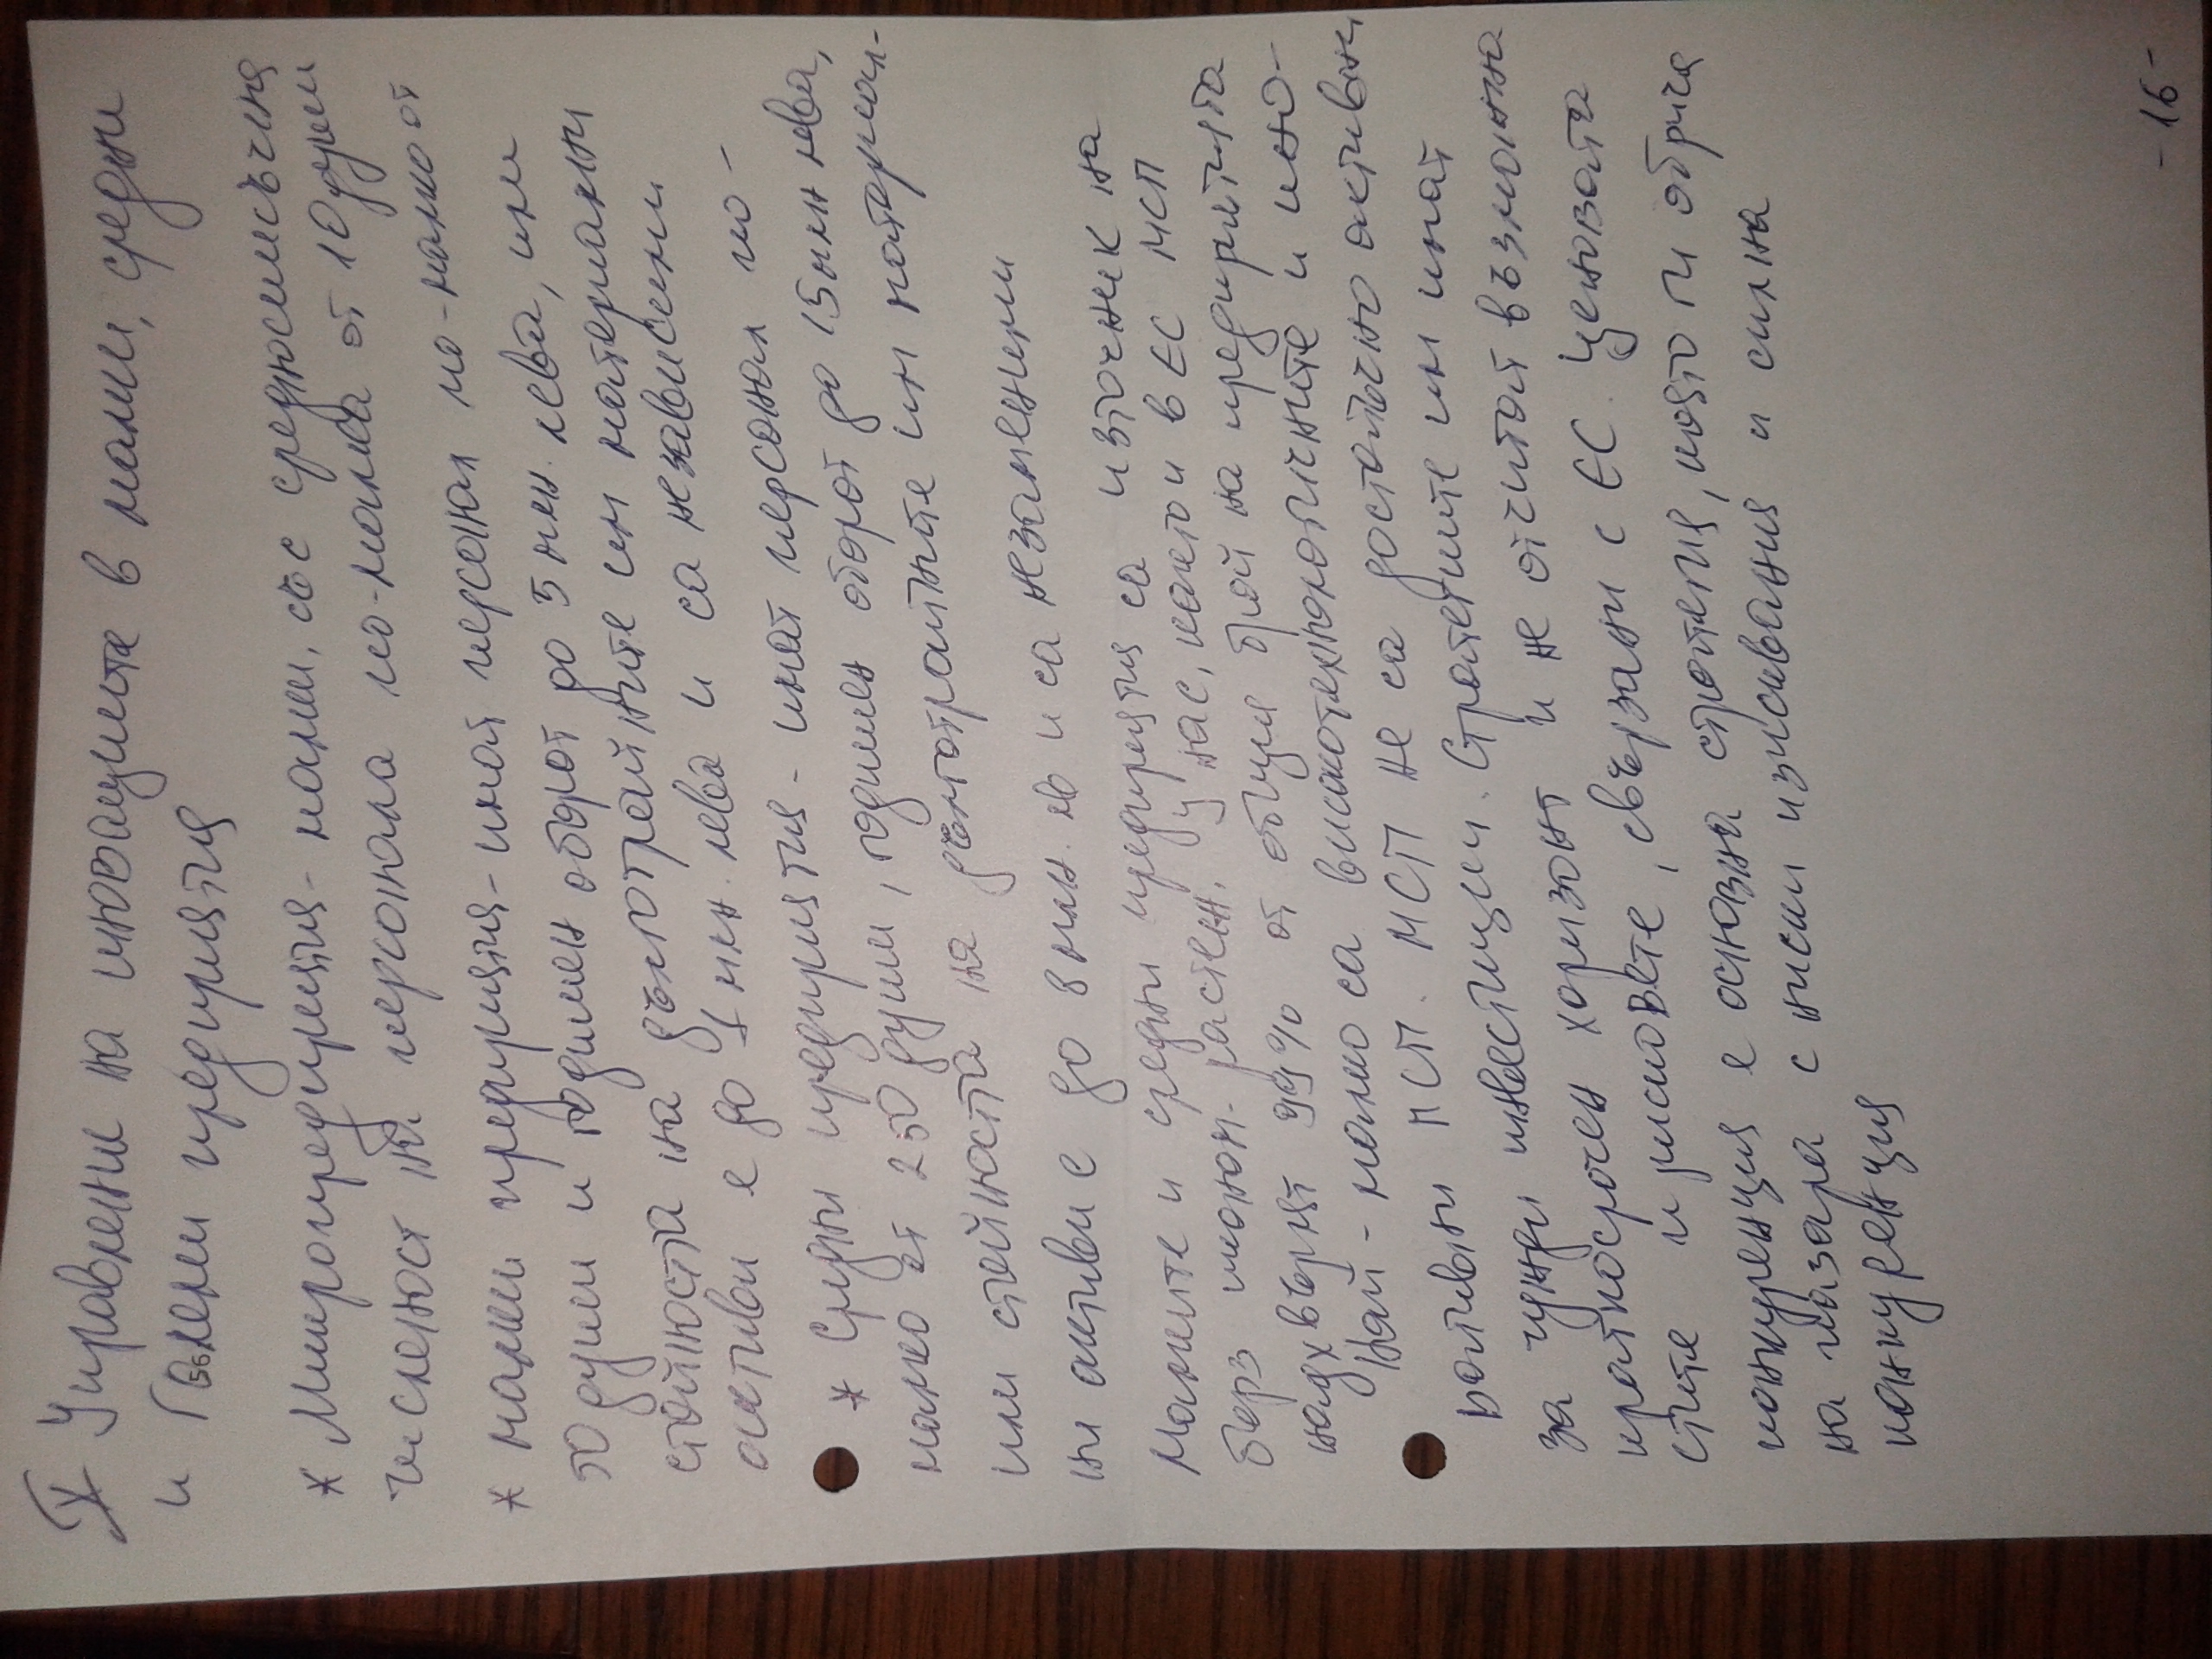 X Управлени на иновациите в малки, средни
и големи предприятия
* Микропредприятия - малки, със средносписъчна
численост на персонала по-малка от 10 души
* малки предприятия - имат персонал по-малко от
50 души и годишен оборот до 5 млн. лева, или
стойността на дълготрайните им материални
активи е до 1 млн. лева и са независими
* Средни предприятия - имат персонал по-
малко от 250 души, годишен оборот до 15 млн лева,
или стойността на дълготрайните им материал-
ни активи е до 8 млн. лв и са независими
Малките и средни предприятия са източник на
бърз иконом. растеж. У нас, както и в ЕС МСП
надхвърлят 99% от общия брой на предприятията
Най-малко са високотехнологичните и ино-
вативни МСП. МСП не са достатъчно активни
за чужди инвестиции. Стратегиите им имат
краткосрочен хоризонт и не отчитат възможно
стите и рисковете, свързани с ЕС. Ценовата
конкуренция е основна стратегия, която ги обрича
на пазара с ниски изисквания и силна
конкуренция
- 16 -